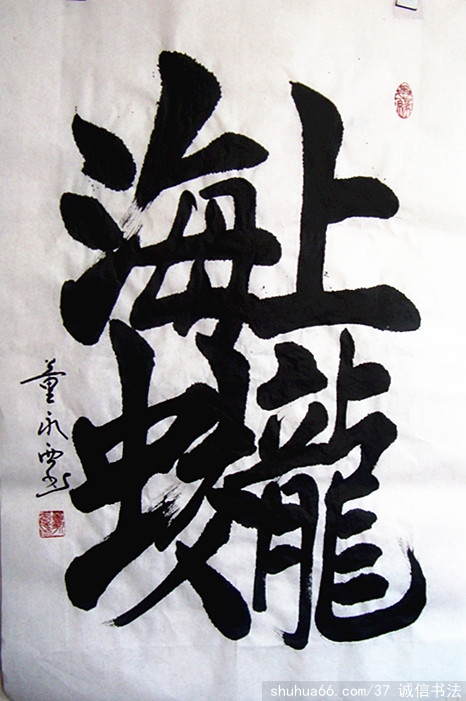 海上
蛟龍
董永西
shuhua66.com/37 诚信书法